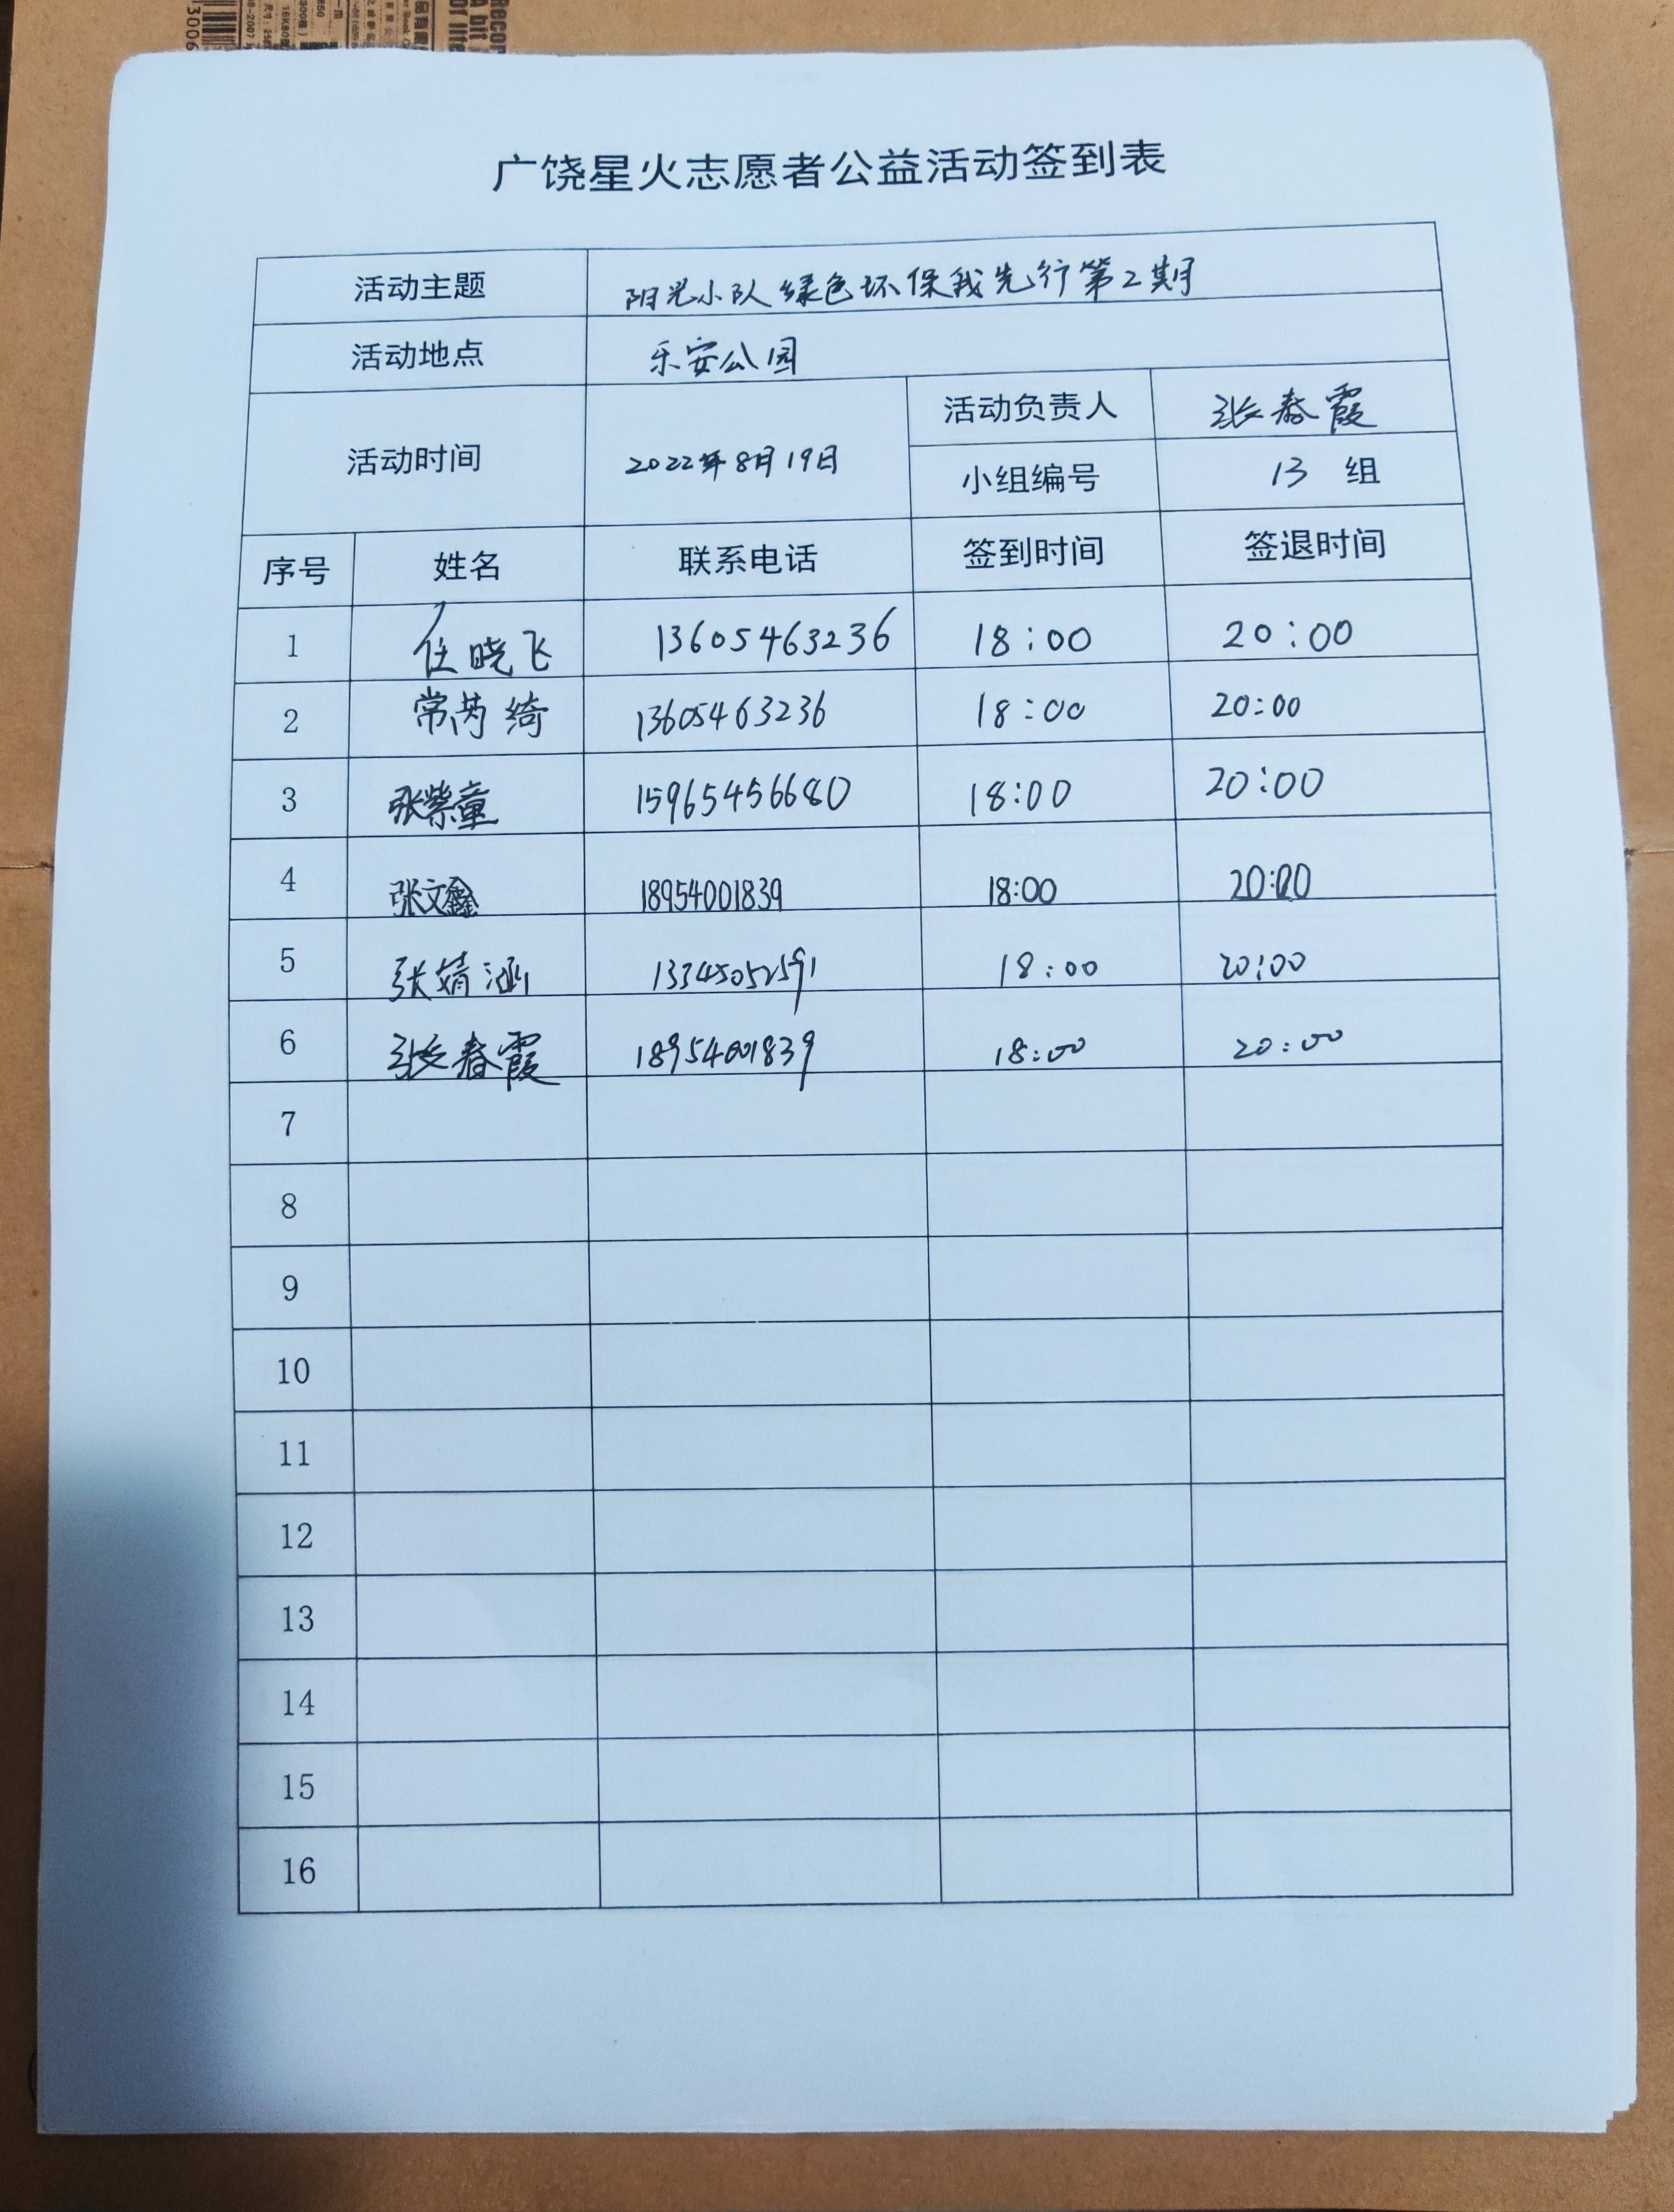 Recor
A bit
Of life
3006
广饶星火志愿者公益活动签到表
活动主题 阳光小队绿色环保我先行第2期
活动地点 乐安公园
活动时间 2022年8月19日 活动负责人 张春霞
小组编号 13 组
序号 姓名 联系电话 签到时间 签退时间
1 任晓飞 13605463236 18:00 20:00
2 常芮绮 13605463236 18:00 20:00
3 张紫童 15965456680 18:00 20:00
4 张文鑫 18954001839 18:00 20:00
5 张婧涵 13345052591 18:00 20:00
6 张春霞 18954001839 18:00 20:00
7
8
9
10
11
12
13
14
15
16